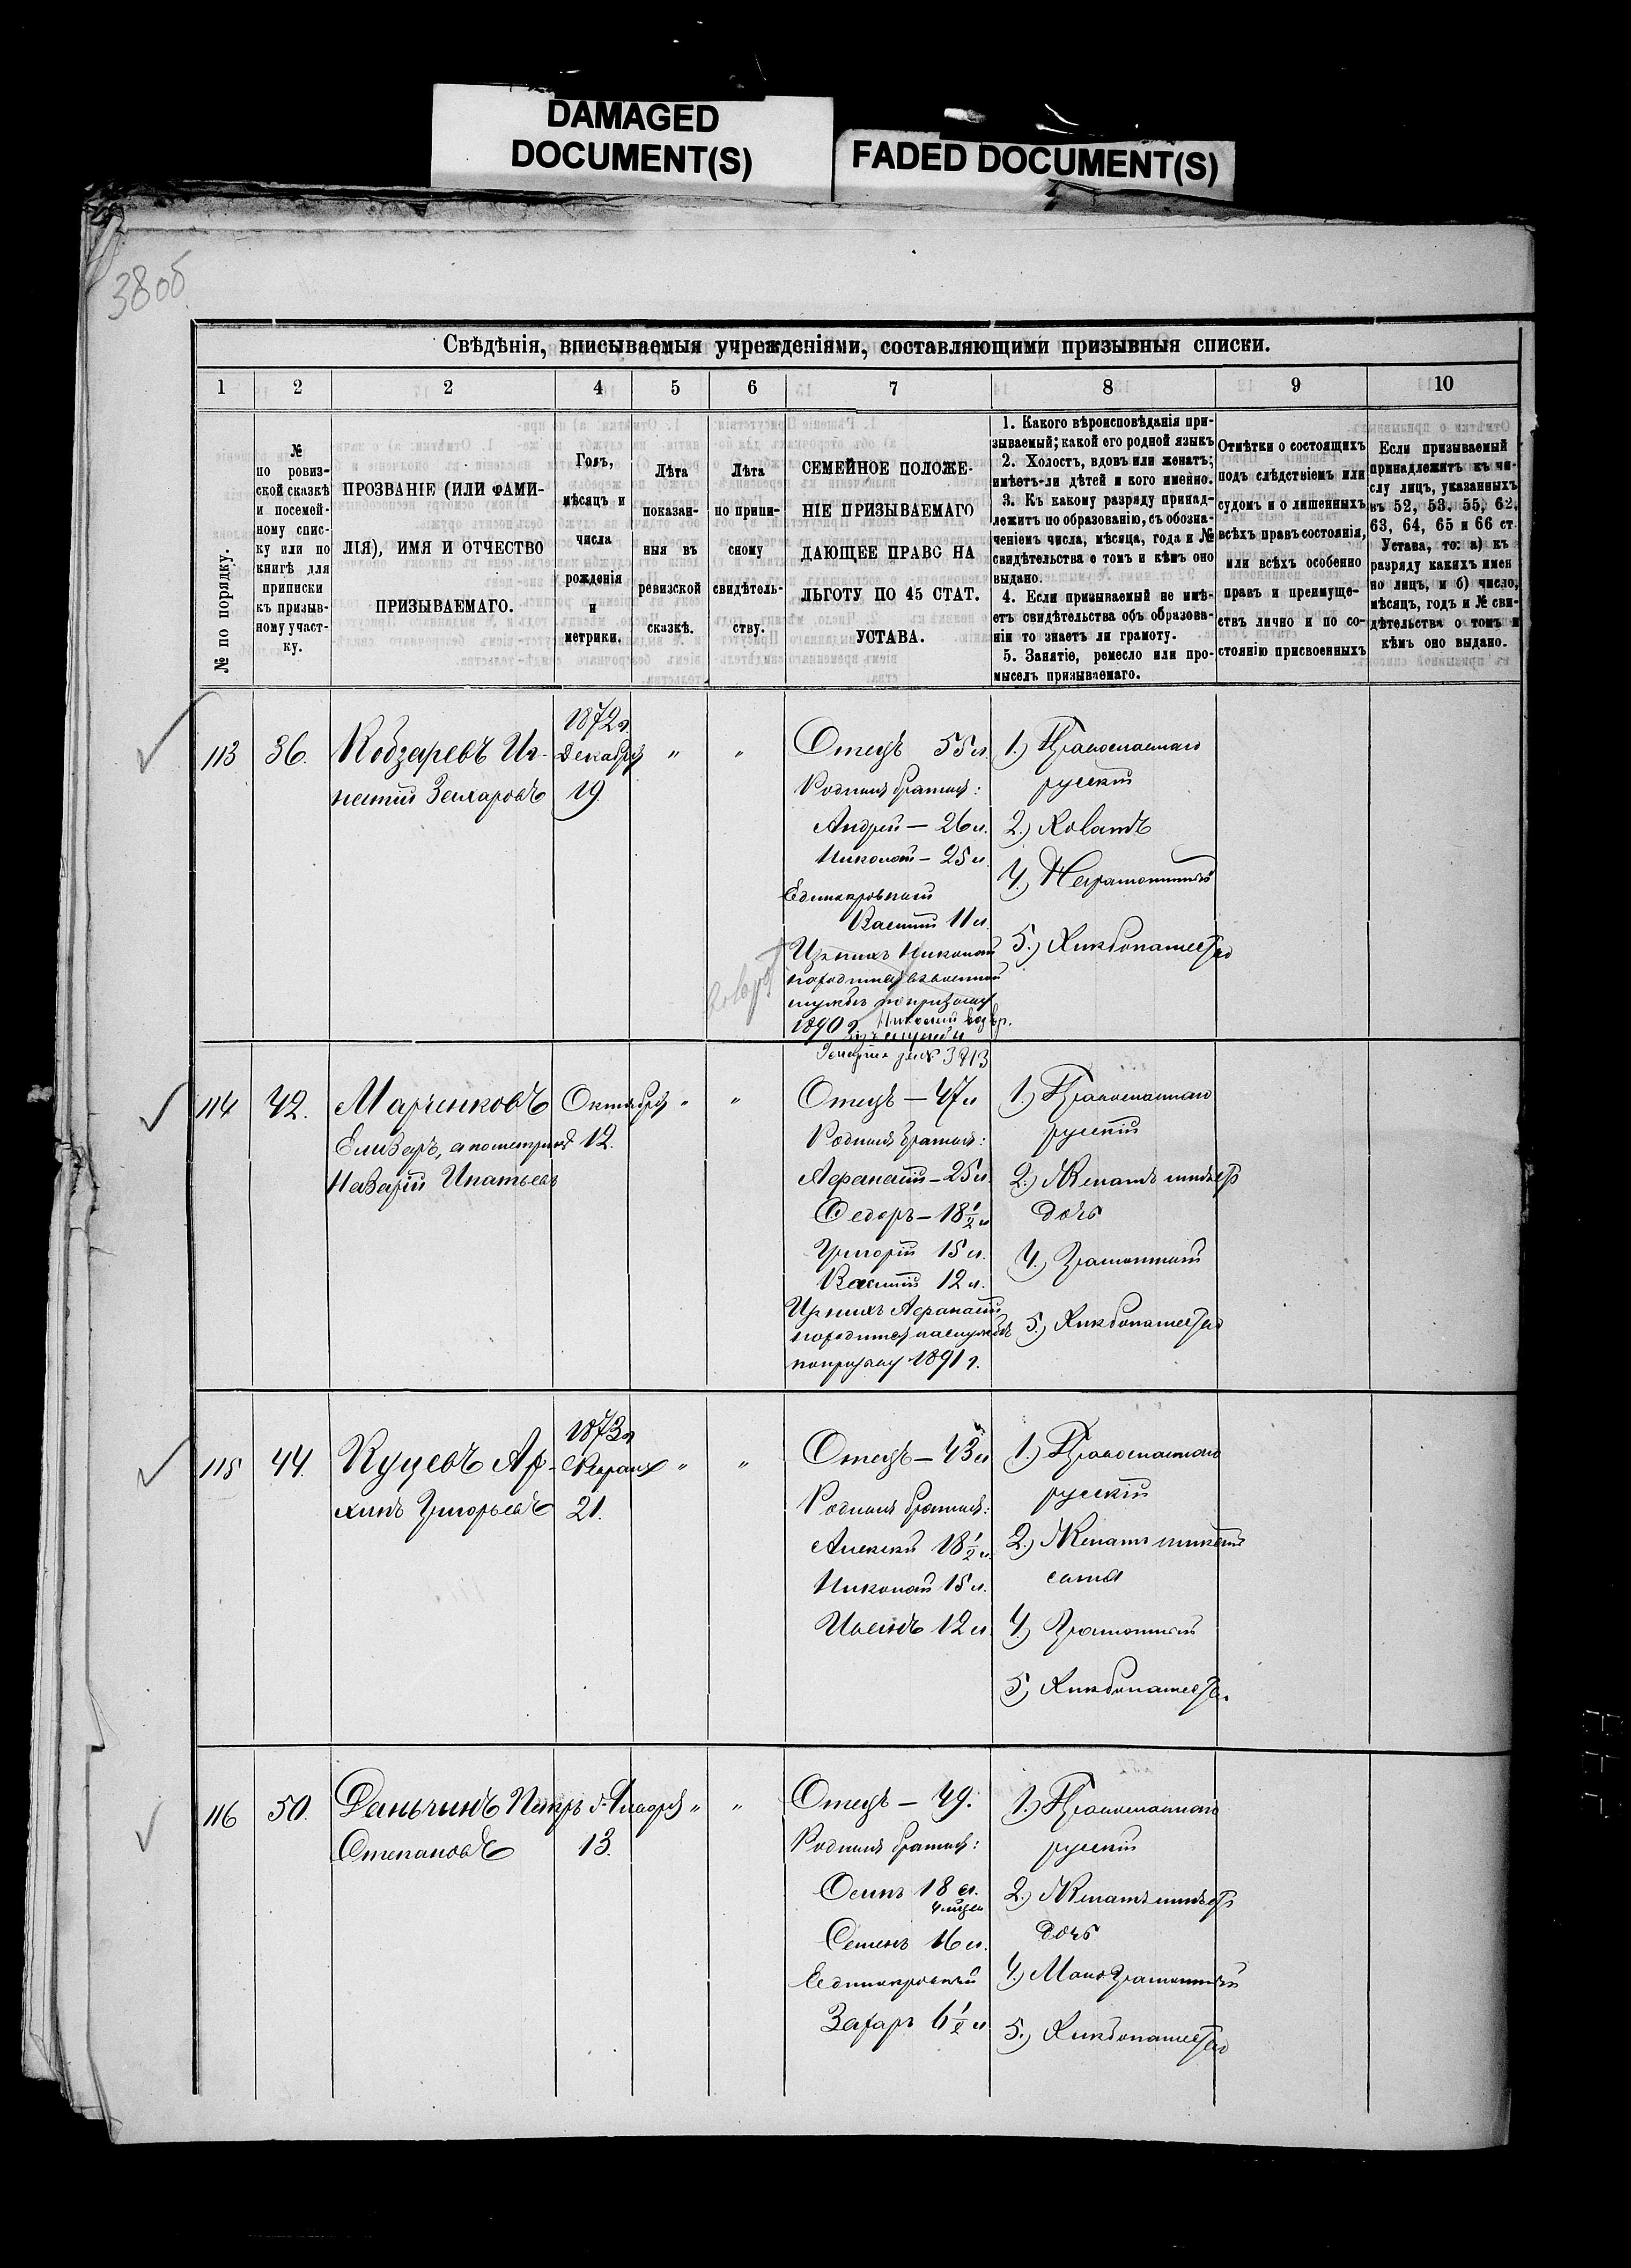 DAMAGED
DOCUMENT(S)
FADED DOCUMENT(S)
38об
Свѣдѣнія, вписываемыя учрежденіями, составляющими призывныя списки.
1 2 2 4 5 6 7 8 9 10
№ по порядку.
№
по ровиз-
ской сказкѣ
и посемей-
ному спис-
ку или по
книгѣ для
приписки
къ призыв-
ному участ-
ку.
ПРОЗВАНІЕ (ИЛИ ФАМИ-
ЛІЯ), ИМЯ И ОТЧЕСТВО
ПРИЗЫВАЕМАГО.
Годъ,
мѣсяцъ и
числа
рожденія
и
метрики.
Лѣта
показан-
ныя въ
ревизской
сказкѣ.
Лѣта
по припи-
сному
свидѣтель-
ству.
СЕМЕЙНОЕ ПОЛОЖЕ-
НІЕ ПРИЗЫВАЕМАГО
ДАЮЩЕЕ ПРАВО НА
ЛЬГОТУ ПО 45 СТАТ.
УСТАВА.
1. Какого вѣроисповѣданія при-
зываемый; какой его родной языкъ
2. Холостъ, вдовъ или женатъ;
имѣетъ-ли дѣтей и кого именно.
3. Къ какому разряду принад-
лежитъ по образованію, съ обозна-
ченіемъ числа, мѣсяца, года и №
свидѣтельства о томъ и кѣмъ оно
выдано.
4. Если призываемый не имѣ-
етъ свидѣтельства объ образова-
ніи то знаетъ ли грамоту.
5. Занятіе, ремесло или про-
мыселъ призываемаго.
Отмѣтки о состоящихъ
подъ слѣдствіемъ или
судомъ и о лишенныхъ
всѣхъ правъ состоянія,
или всѣхъ особенно
правъ и преимуще-
ствъ лично и по со-
стоянію присвоенныхъ
Если призываемый
принадлежитъ къ чи-
слу лицъ, указанныхъ
въ 52, 53, 55, 62,
63, 64, 65 и 66 ст.
Устава, то: а) къ
разряду какихъ имен
но лицъ, и б) число,
мѣсяцъ, годъ и № сви-
дѣтельства о томъ и
кѣмъ оно выдано.
113 36. Кобзаревъ Иг-
натій Захаровъ
1872 г.
Декабря
19.
" "
Отецъ 55 л.
Родныя братья:
Андрей — 26 л.
Николай — 25 л.
Единокровный
Василій 11 л.
Изъ нихъ Николай
находится въ военной
службѣ по призыву
1890 г. Николай возвр.
изъ службы
3913
1.) Православнаго
русскій
2.) Холостъ
4.) Неграмотный
5.) Хлѣбопашество
114 42. Марченковъ
Елизаръ, а по метрикѣ
Назарій Игнатьевъ
Октября
12.
" "
Отецъ — 47 л
Родныя братья:
Афанасій — 25 л.
Федоръ — 18 ½ л
Григорій 15 л.
Василій 12 л.
Изъ нихъ Афанасій
находится на службѣ
по призыву 1891 г.
1.) Православнаго
русскій
2.) Женатъ имѣетъ
дочь
4.) Грамотный
5.) Хлѣбопашество
115 44. Куцевъ Ар-
хипъ Григорьевъ
1873 г
Февраля
21.
" "
Отецъ — 43 л
Родныя братья:
Алексѣй 18 ½ л.
Николай 15 л.
12 л.
1.) Православнаго
русскій
2.) Женатъ имѣетъ
сына
4.) Грамотный
5.) Хлѣбопашество
116 50. Даньчинъ Петръ
Степановъ
Января
13.
" "
Отецъ — 49.
Родныя братья:
Осипъ 18 л.
Семенъ 16 л.
Единокровный
Захаръ 6 ½ л
1.) Православнаго
русскій
2.) Женатъ имѣетъ
дочь
4.) Малограмотный
5.) Хлѣбопашество